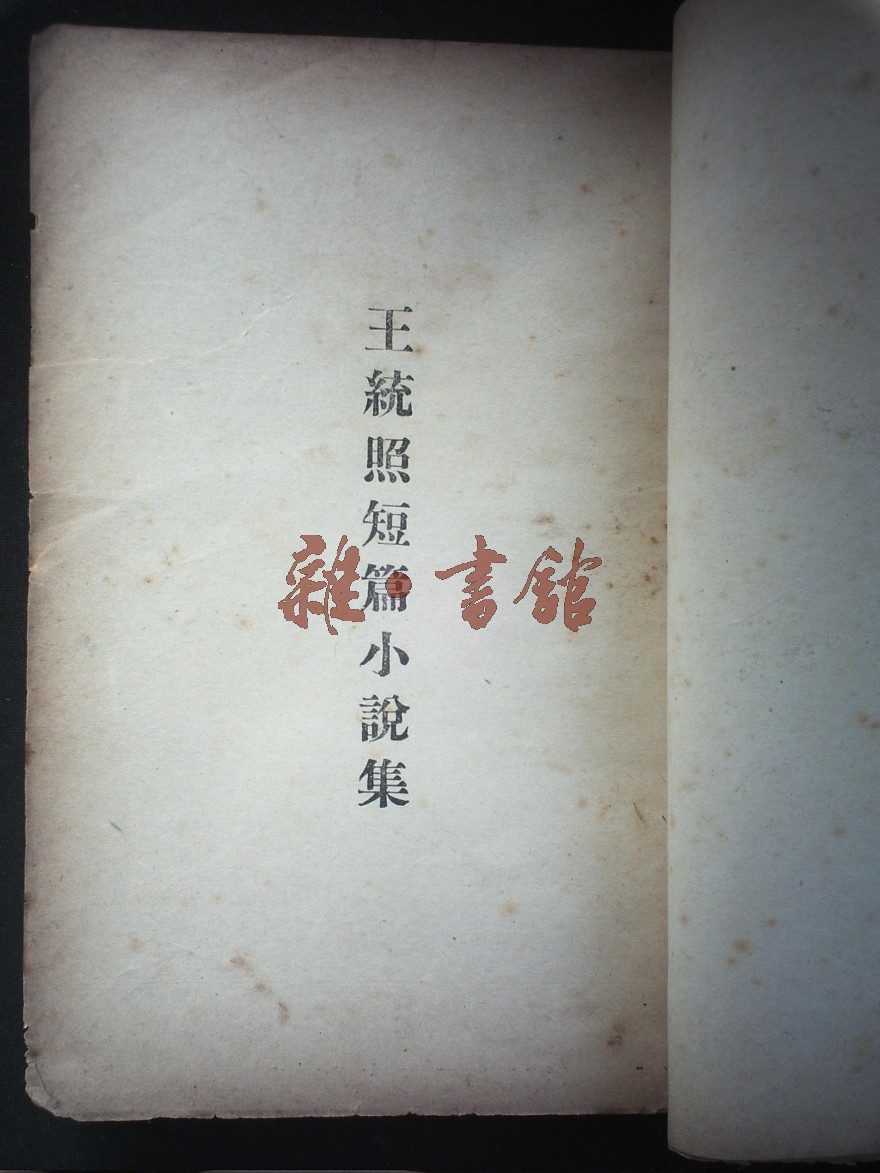 王統照短篇小說集
雜·書館